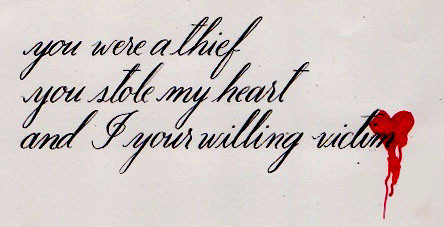 you were a thief
you stole my heart
and I your willing victim